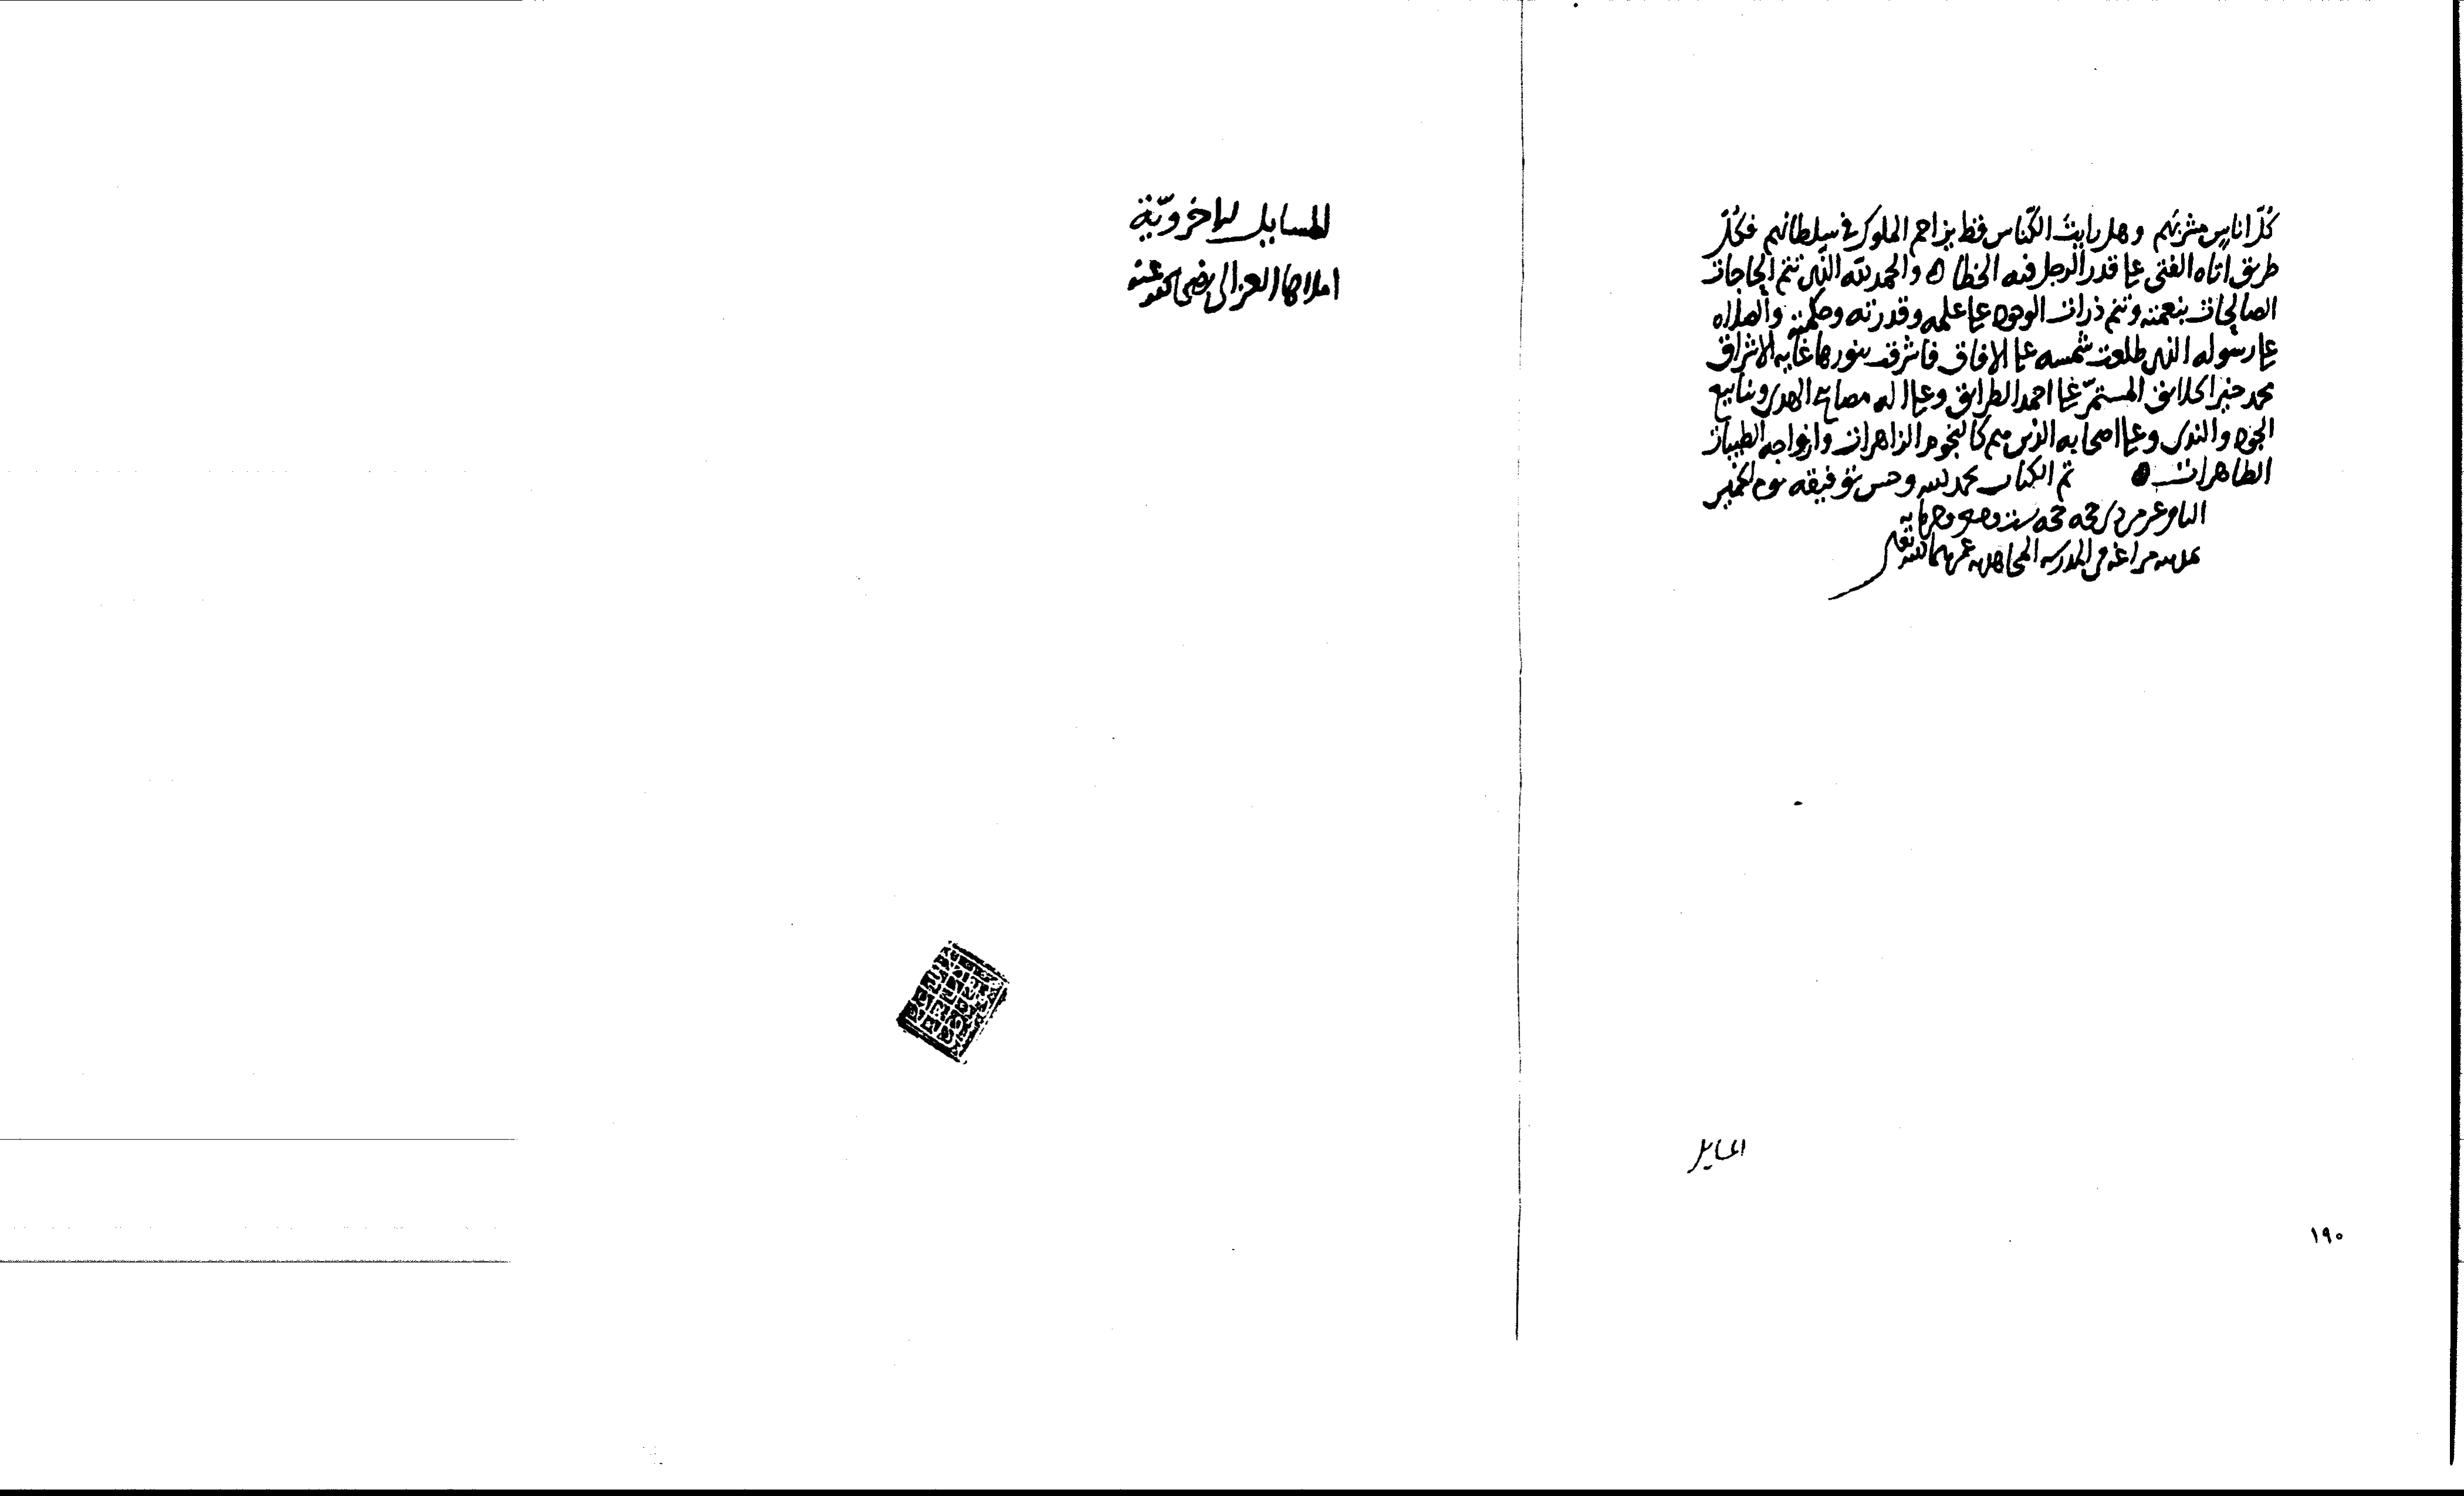 كل اناس مشربهم وهل رايت الكناس قط يزاحم الملوك في سلطانهم فكل
طريق اتاه الفتى على قدر الرجل فيه الخطا ه والحمد لله الذي تتم الحاجات
الصالحات بنعمته وتتم ذرات الوجود على علمه وقدرته وحكمته والصلاه
على رسوله الذي طلعت شمسه على الافاق فاشرقت بنورها غايه الاشراق
محمد خير الخلائق المستمر على احمد الطرائق وعلى اله مصابيح الهدى وينابيع
الجود والندى وعلى اصحابه الذين هم كالنجوم الزاهرات وازواجه الطيبات
الطاهرات ه تم الكتاب بحمد الله وحسن توفيقه يوم الخميس
من ذي حجه حجه سنه
مراغه في المدرسه المجاهديه عمرها الله تعلى
المسايل
١٩٠
المسايل الاخرويّة
املاها الغزالي رضي الله عنه